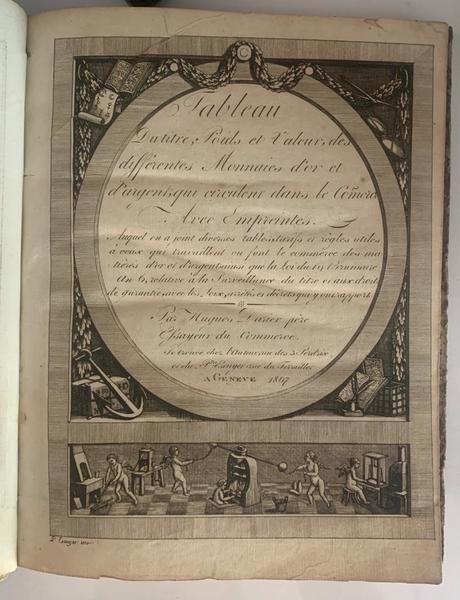 Tableau
Du titre, Poids et Valeur, des
différentes Monnaies d'or et
d'argent, qui circulent dans le Com̃erce
Avec Empreintes.
Auquel on a joint diverses tables, tarifs et règles utiles
à ceux qui travaillent ou font le commerce des ma
tières d'or et d'argent; ainsi que la loi du 19 Brumaire
An 6, relative à la Surveillance du titre et aux droits
de garantie avec les Loix, arrêtés et décrets qui y ont rapport
Par Hugues Darier père
Essayeur du Commerce.
Se trouve chez l'Auteur, rue des 3 Perdrix
et chez Pre Escuyer rue du Terraillet
A GENEVE 1807
P. Escuyer